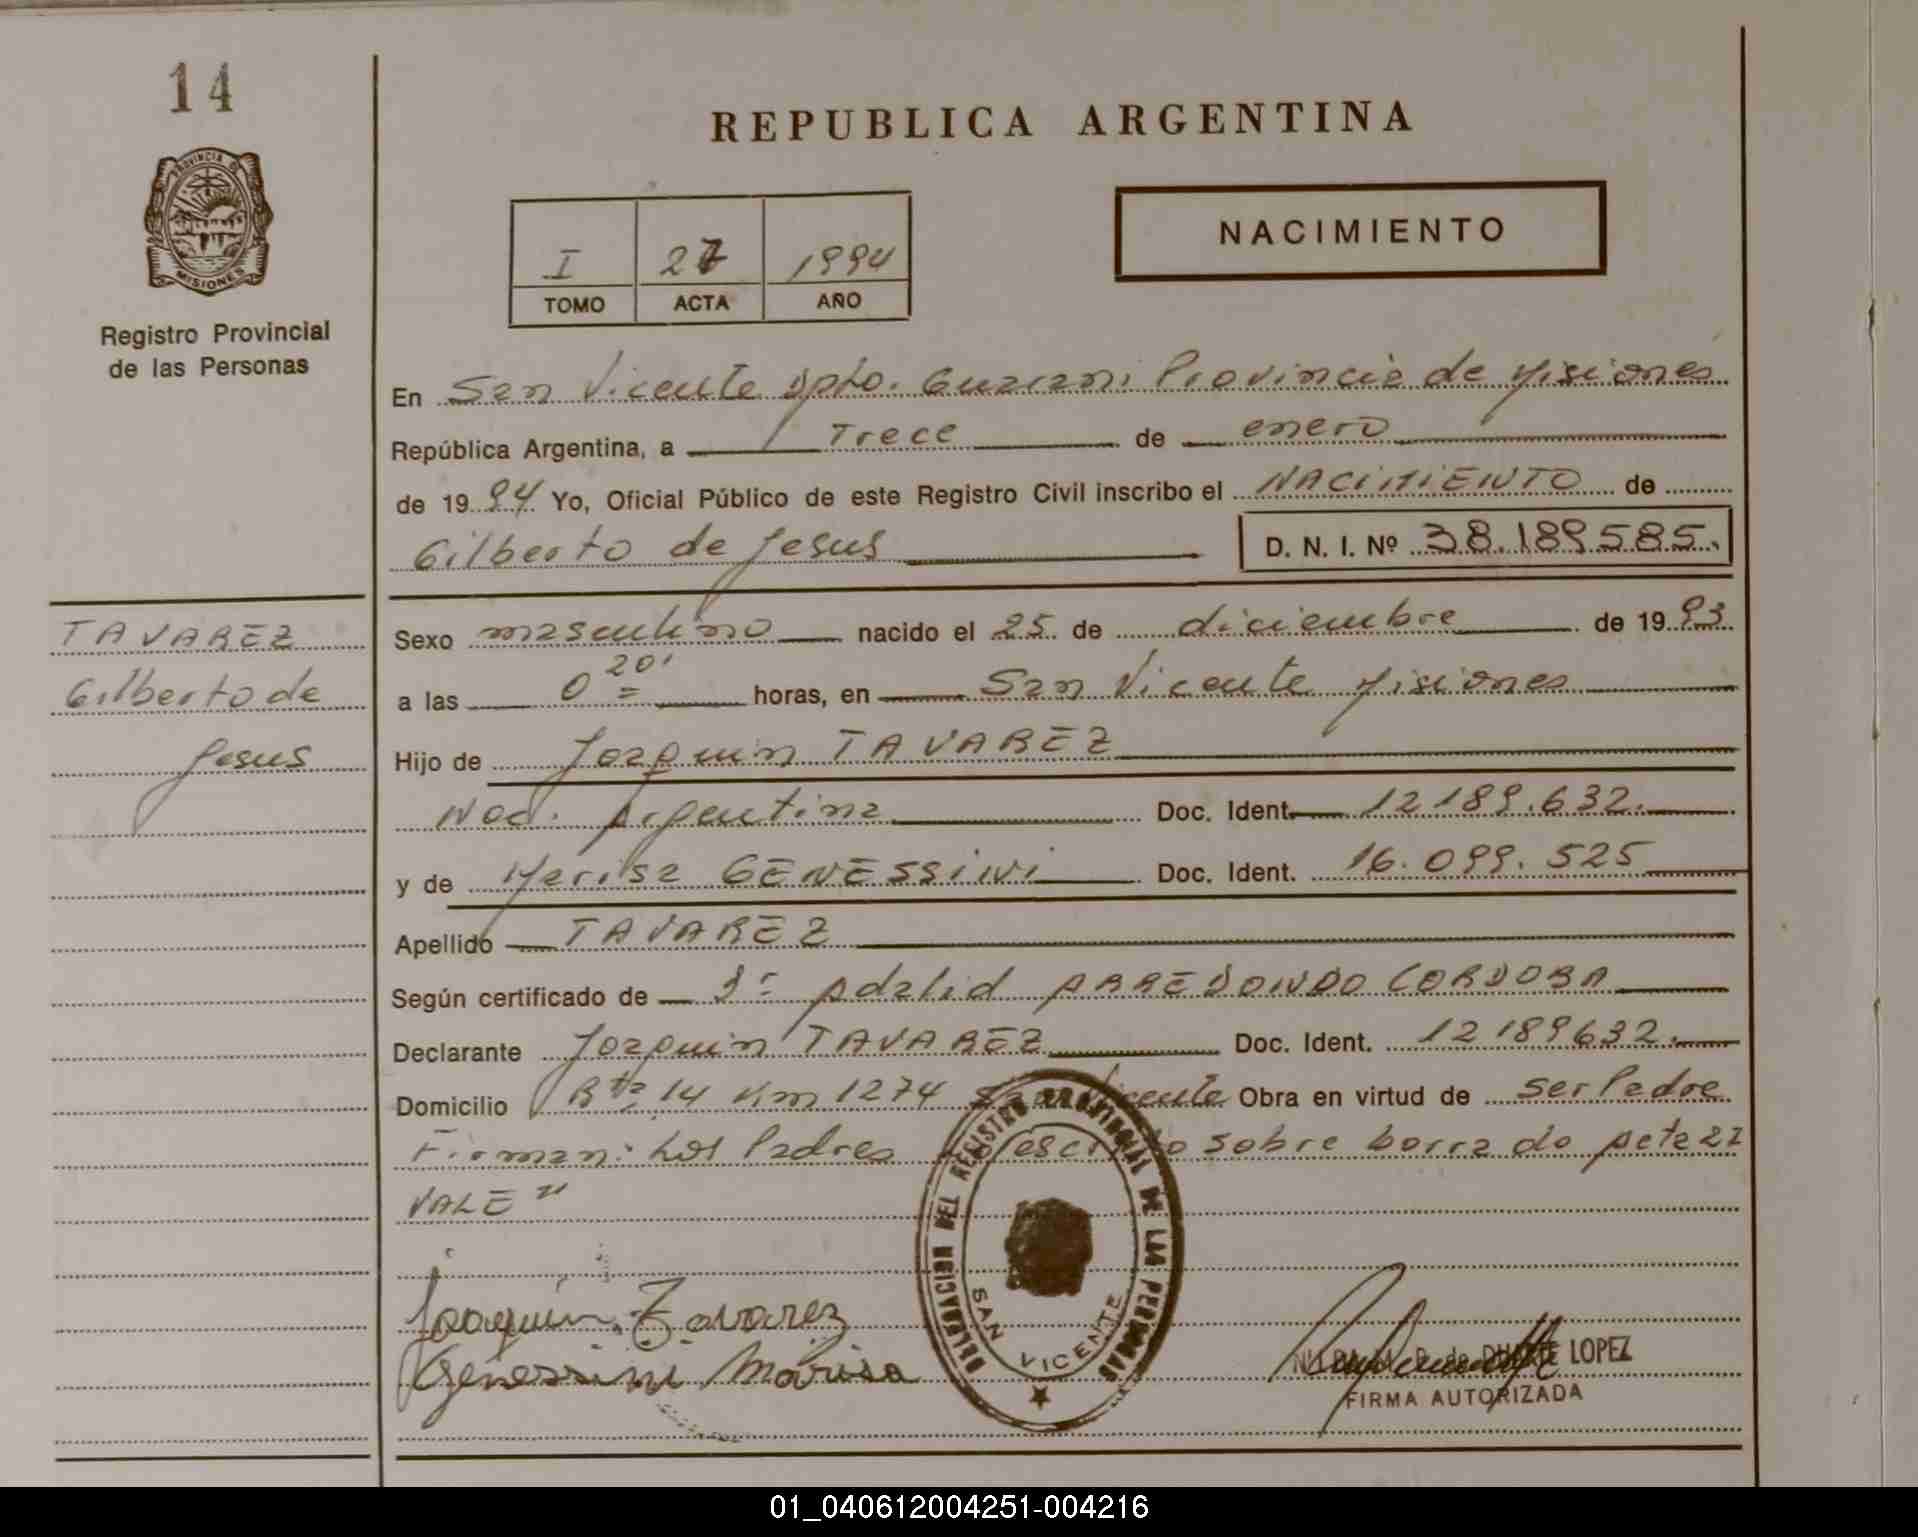 14
REPUBLICA ARGENTINA
PROVINCIA DE
MISIONES
Registro Provincial
de las Personas
I 27 1994
TOMO ACTA AÑO
NACIMIENTO
En San Vicente Dpto. Guarani Provincia de Misiones
República Argentina, a Trece de enero
de 1994 Yo, Oficial Público de este Registro Civil inscribo el NACIMIENTO de
Gilberto de Jesus D. N. I. Nº 38.189.585.
TAVAREZ
Gilberto de
Jesus
Sexo masculino nacido el 25 de diciembre de 1993
a las 0 20' horas, en San Vicente Misiones
Hijo de Joaquin TAVAREZ
Nac. Argentina Doc. Ident. 12189.632.
y de Marisa GENESSINI Doc. Ident. 16.099.525
Apellido TAVAREZ
Según certificado de Adalid ARREDONDO CORDOBA
Declarante Joaquin TAVAREZ Doc. Ident. 12189632.
Domicilio Rta 14 Km 1274 San Vicente Obra en virtud de ser Padre
Firman: Los Padres sobre borrado Acta 27
VALE"
Joaquin Tavarez
Genessini Marisa
DELEGACION DEL REGISTRO PROVINCIAL DE LAS PERSONAS
SAN VICENTE
DUARTE LOPEZ
FIRMA AUTORIZADA
01_040612004251-004216